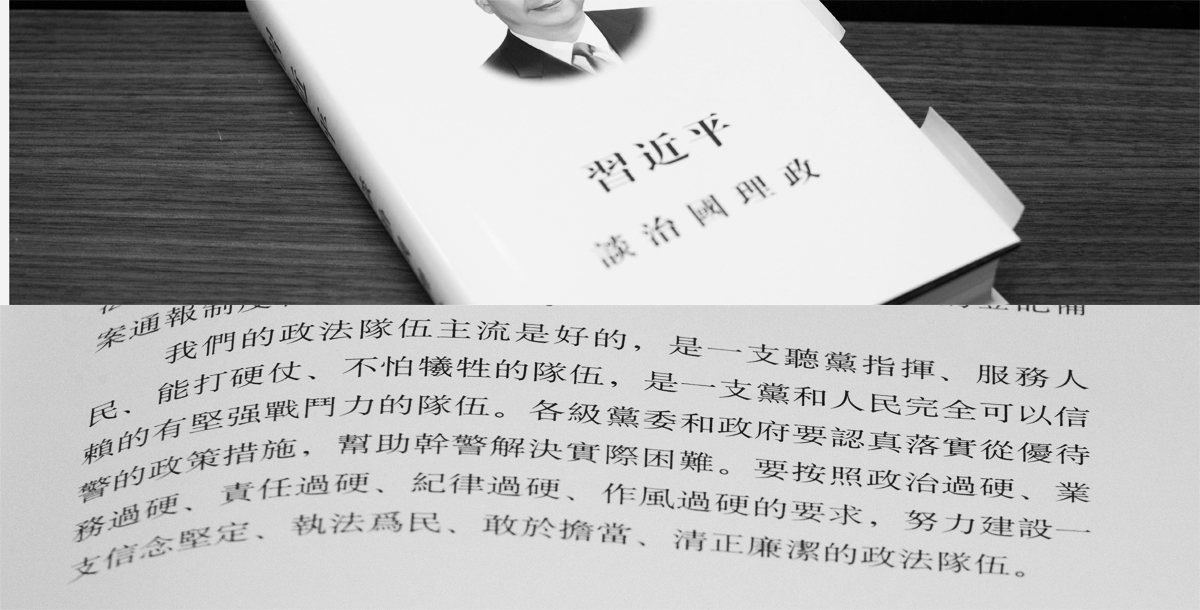 習近平
談治國理政
案通報制度
我們的政法隊伍主流是好的，是一支聽黨指揮、服務人
民、能打硬仗、不怕犧牲的隊伍，是一支黨和人民完全可以信
賴的有堅强戰鬥力的隊伍。各級黨委和政府要認真落實從優待
警的政策措施，幫助幹警解決實際困難。要按照政治過硬、業
務過硬、責任過硬、紀律過硬、作風過硬的要求，努力建設一
支信念堅定、執法爲民、敢於擔當、清正廉潔的政法隊伍。